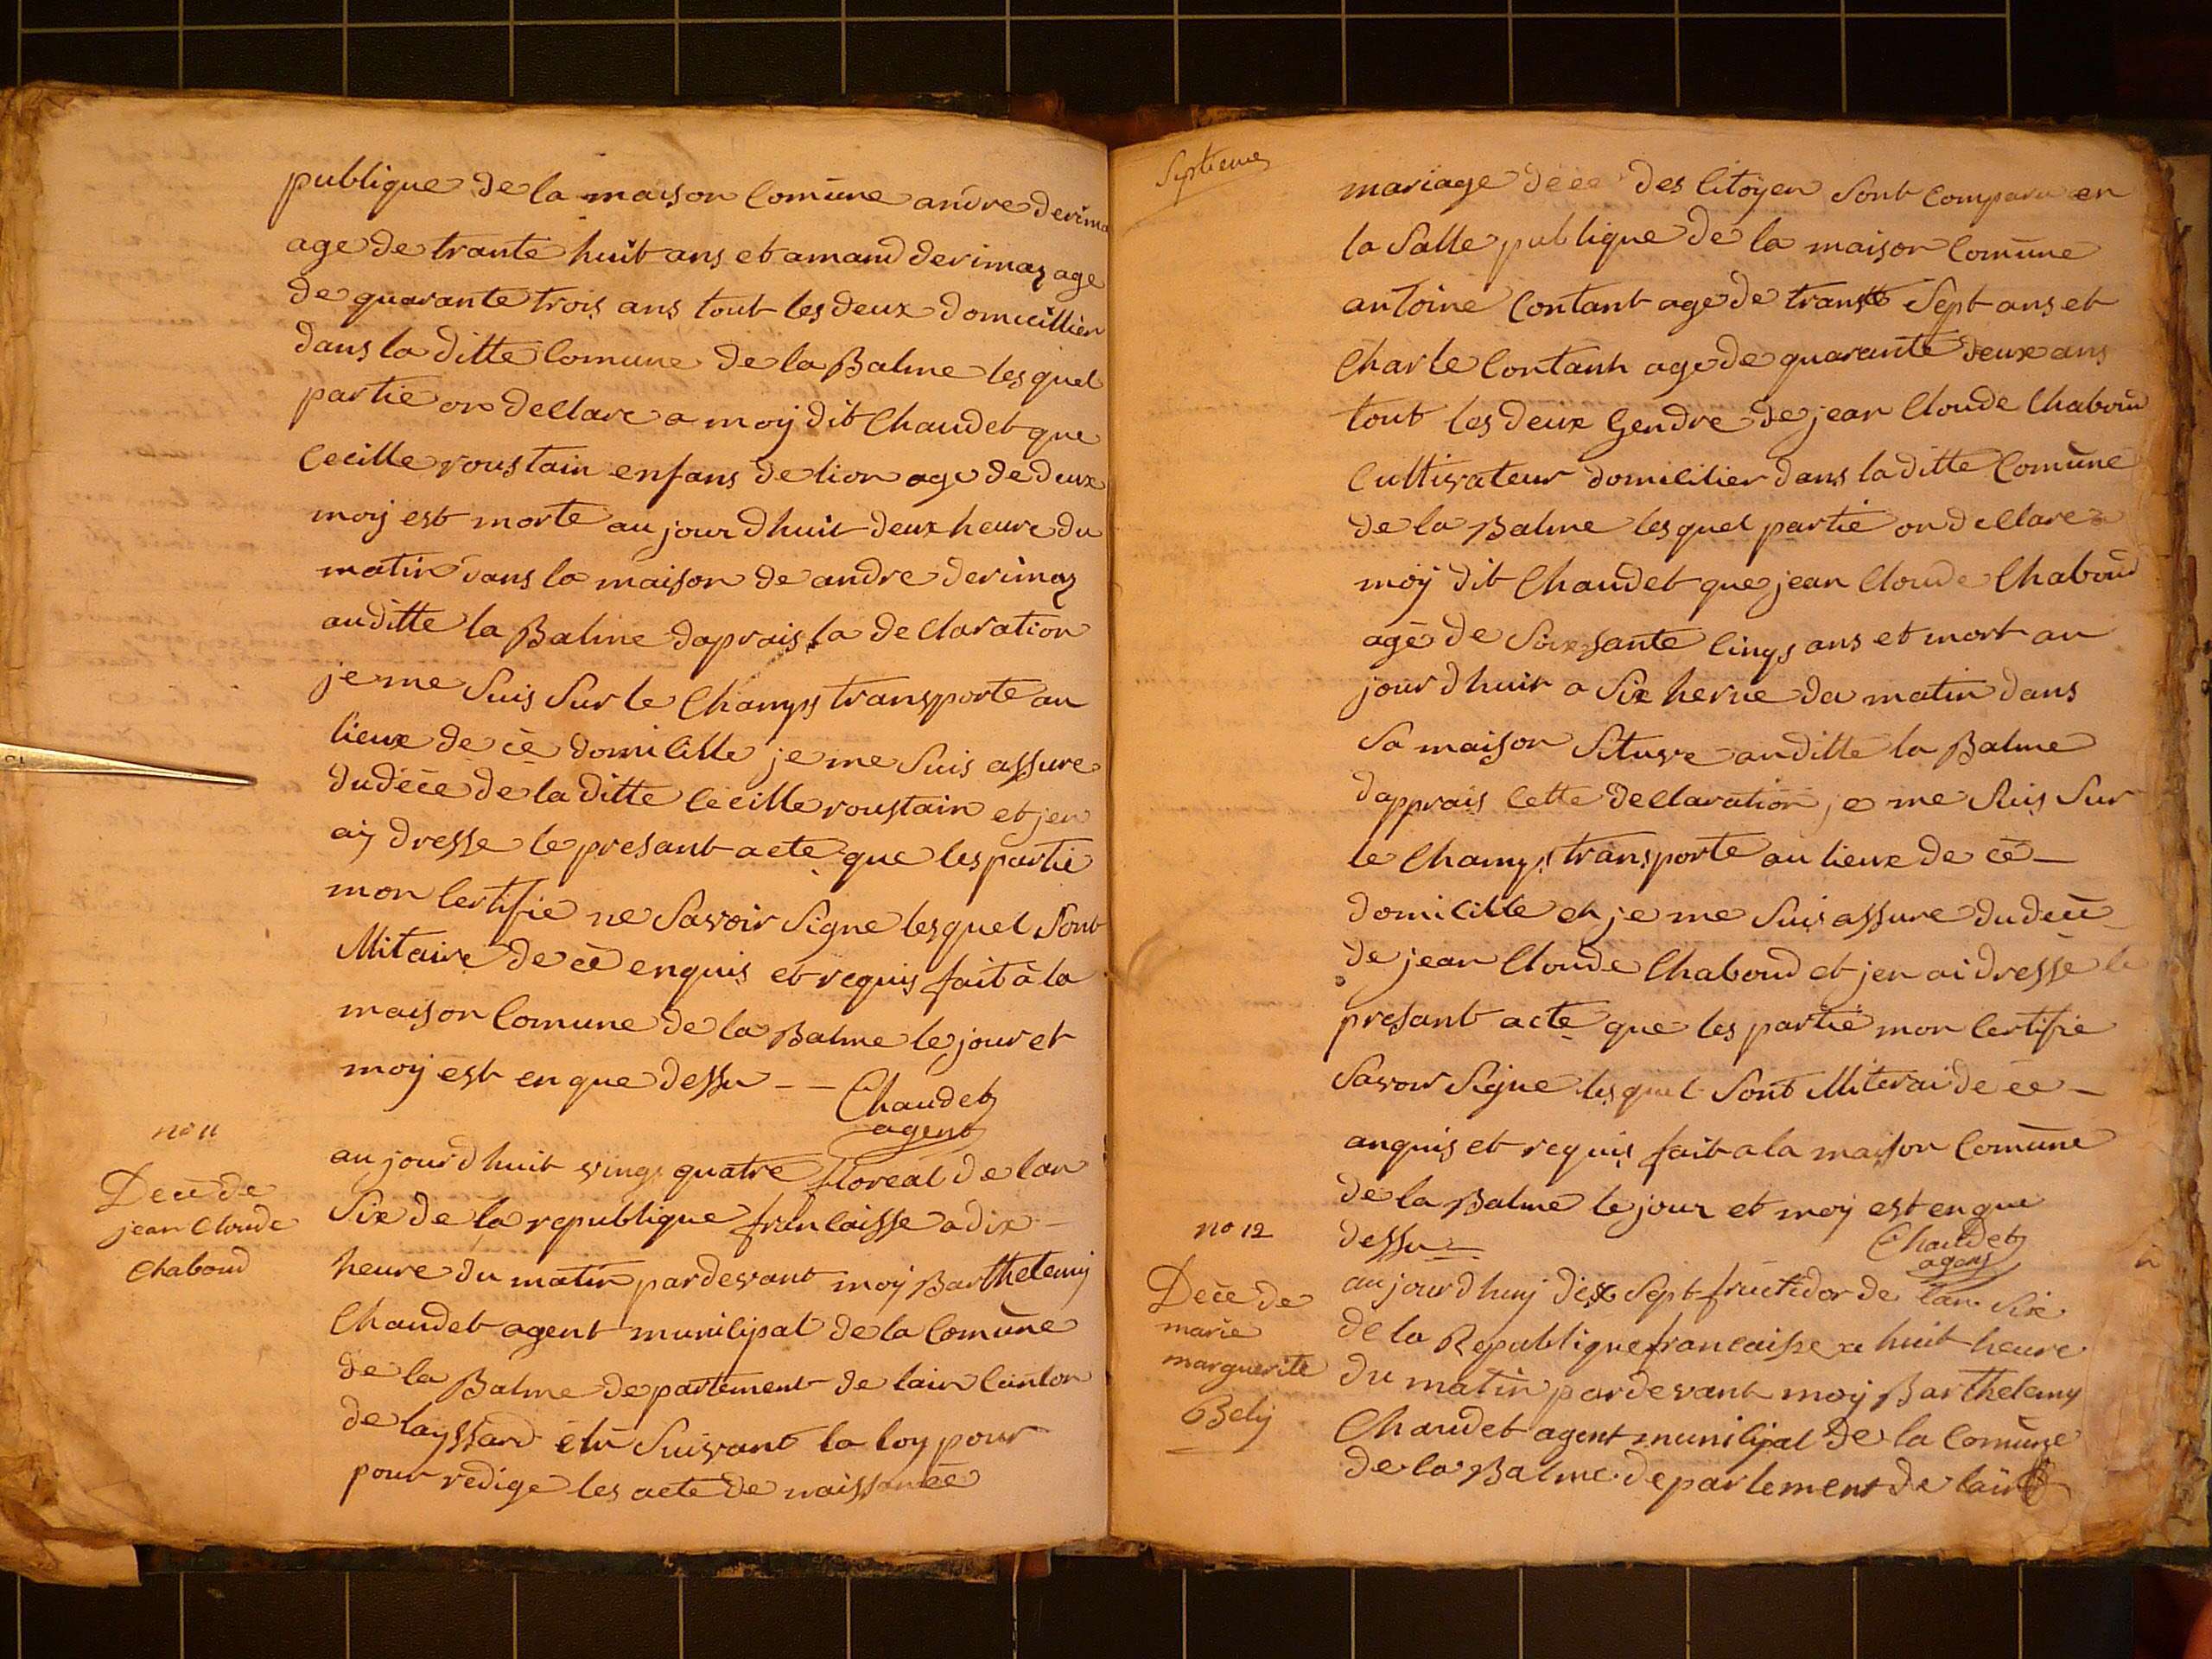 publique de la maison Comune andre derima
age de trante huit ans et amand derimaz age
de quarante trois ans tout les deux domicillier
dans la ditte Comune de la Balme les quel
partie on dellare a moÿ dit Chaudet que
Cecille roustain enfans de lion age de deux
moÿ est morte au jour dhuit deux heure du
matin dans la maison de andre derimaz
auditte la Balme daprais la declaration
je me suis sur le Champs transporte au
lieux de cè domicille je me suis assure
du dèce de la ditte Cecille roustain et jen
aÿ dresse le presant acte que les partie
mon Certifie ne savoir signe les quel sont
Militaire de cè enquis et requis fait à la
maison Comune de la Balme le jour et
moÿ est en que dessu - - Chaudet
agent
no 11
Decè de
jean Cloude
Chaboud
au jour dhuit vings quatre floreal de lan
six de la republique francaisse a dix
heure du matin pardevant moÿ Barthelemÿ
Chaudet agent municipal de la Comune
de la Balme departement de lain Canton
de layssard èlu suivant la loy pour
pour redige les acte de naissance
Septieme
mariage dèce des Citöyen sont Comparu en
la Salle publique de la maison Comune
antoine Contant age de trante sept ans et
Charle Contant age de quarante deux ans
tout les deux Gendre de jean Cloude Chaboud
Cultivateur domicilier dans la ditte Comune
de la Balme les quel partie on dellare a
moÿ dit Chaudet que jean Cloude Chaboud
agè de soixsante Cinqs ans et mort au
jour dhuit a six herue du matin dans
sa maison situve auditte la Balme
dapprais Cette declaration je me suis sur
le Champs transporte au lieux de cè
domicille et je me suis assure du decè
de jean Cloude Chaboud et jen ai dressè le
presant acte que les partie mon Certifie
savoir signe les quel sont Miterai de cè
anquis et requis fait a la maison Comune
de la Balme le jour et moÿ est en que
dessu Chaudet
agent
no 12
Decè de
marie
marguerite
Belÿ
au jour dhuÿ dix sept fructidor de lan six
de la Republique francaisse a huit heure
du matin pardevant moÿ Barthelemy
Chaudet agent municipal de la Comune
de la Balme departement de lain